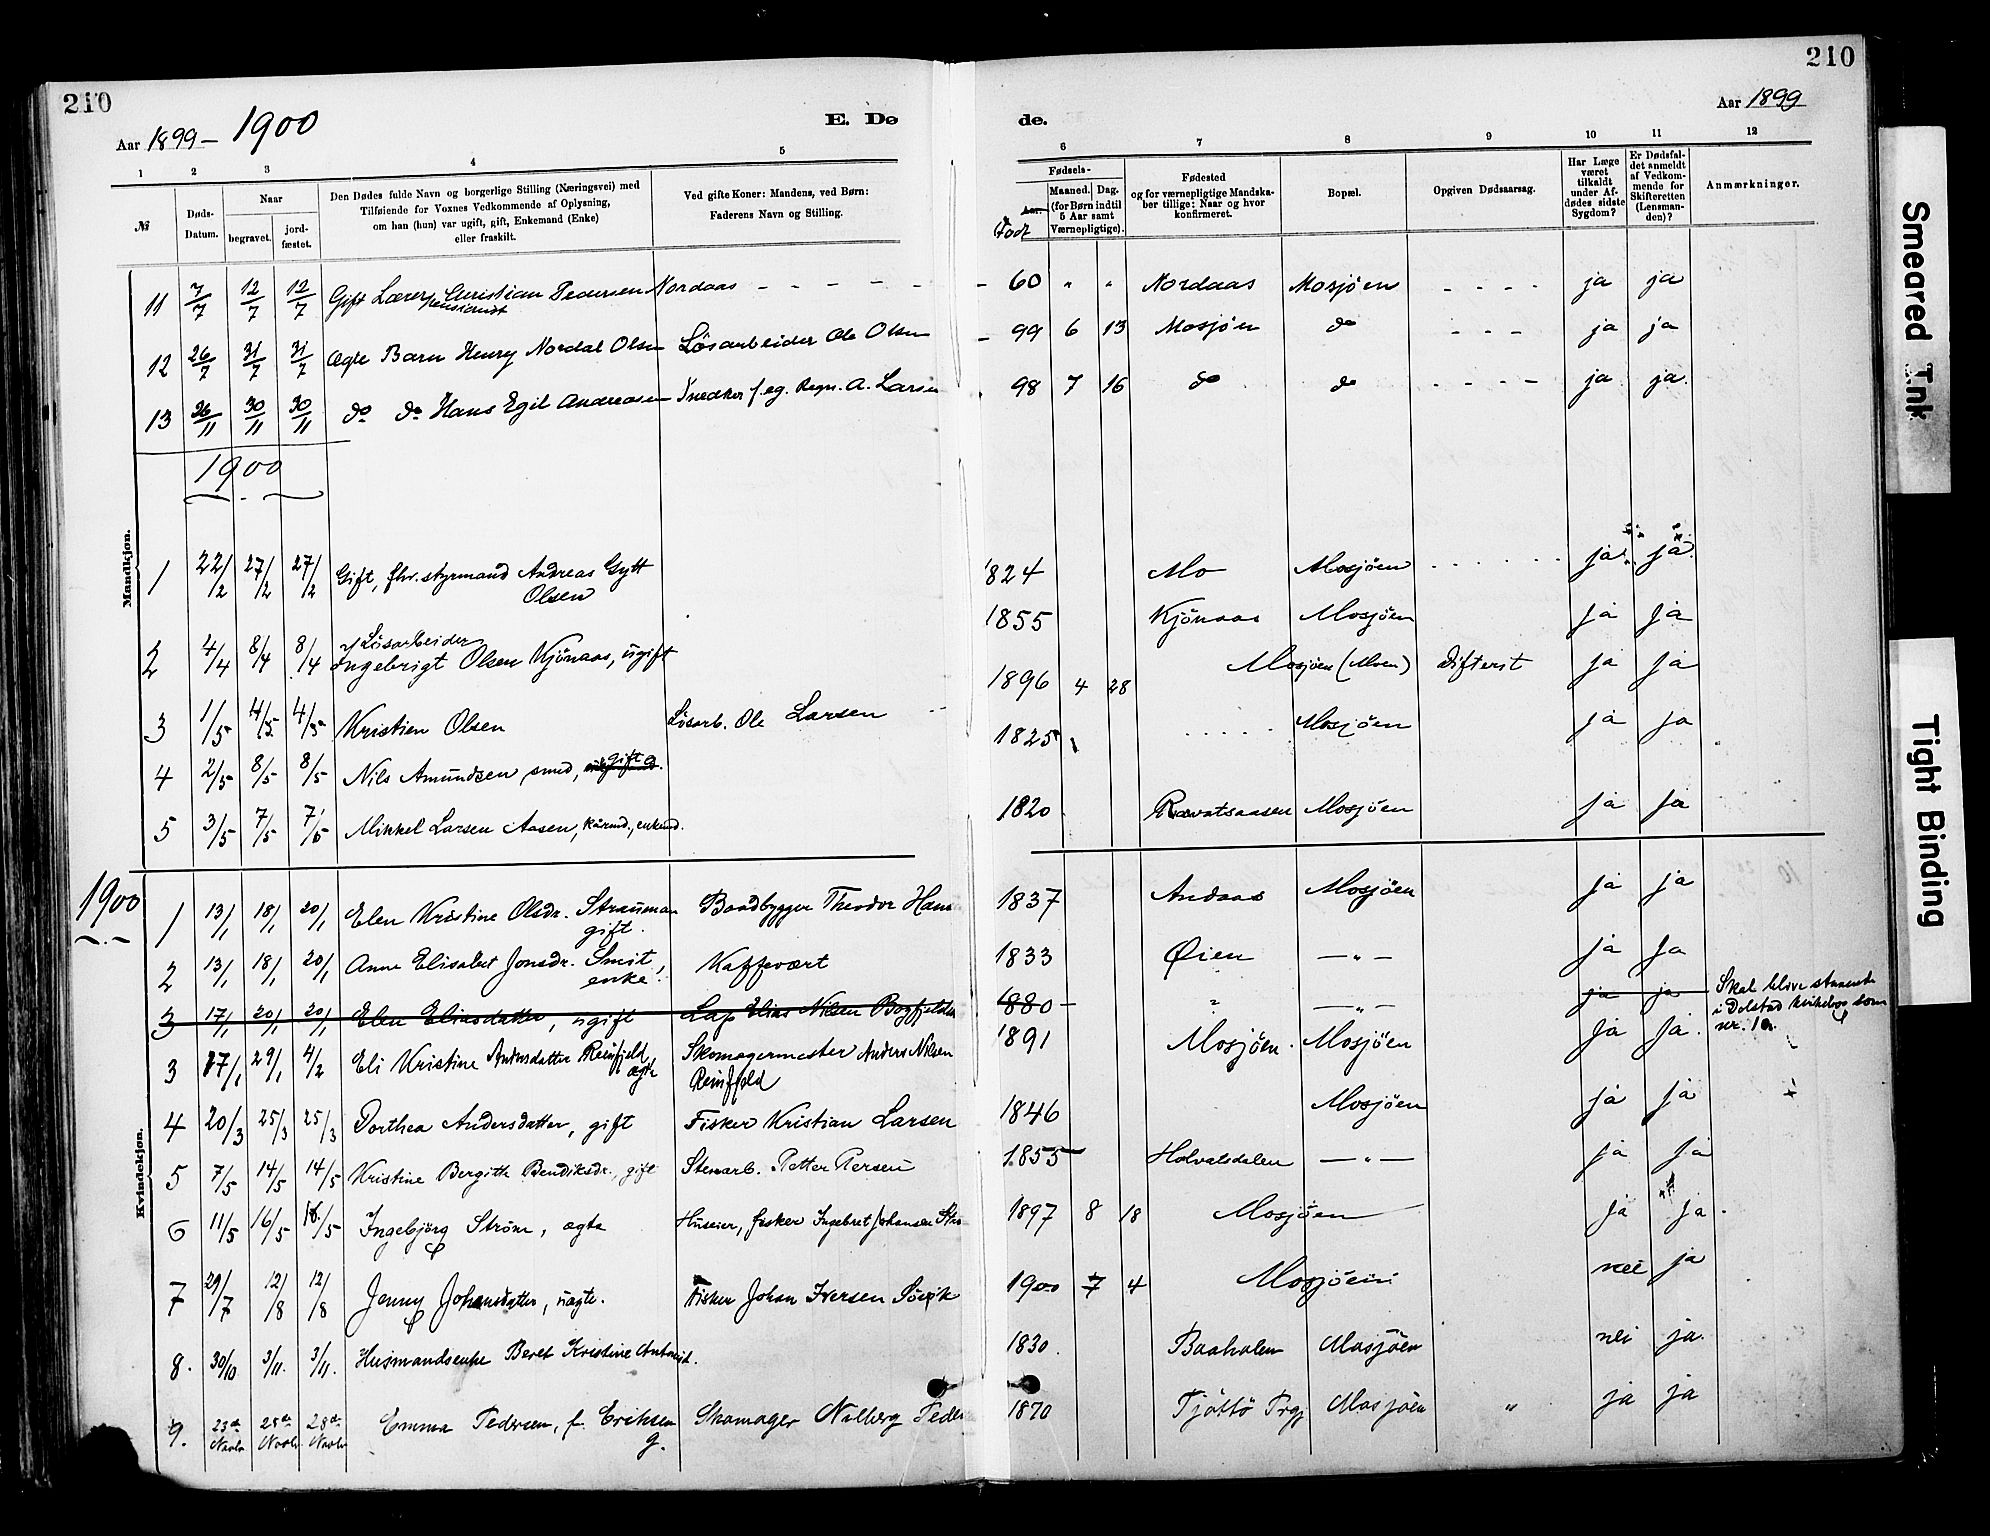 210
210
Aar 1899 - 1900
E. Dø
de.
Aar 1899
1 2 3 4 5 6 7 8 9 10 11 12
№
Døds-Datum.
Naar
begravet.
jord-fæstet.
Den Dødes fulde Navn og borgerlige Stilling (Næringsvei) med
Tilføiende for Voxnes Vedkommende af Oplysning,
om han (hun) var ugift, gift, Enkemand (Enke)
eller fraskilt.
Ved gifte Koner: Mandens, ved Børn:
Faderens Navn og Stilling.
Fødsels-
Aar.
Født
Maaned. Dag.
(for Børn indtil
5 Aar samt
Værnepligtige).
Fødested
og for værnepligtige Mandska-
ber tillige: Naar og hvor
konfirmeret.
Bopæl.
Opgiven Dødsaarsag.
Har Læge
været
tilkaldt
under Af-
dødes sidste
Sygdom?
Er Dødsfal-
det anmeldt
af Vedkom-
mende for
Skifteretten
(Lensman-
den)?
Anmærkninger.
Mandkjøn.
11 7/7 12/7 12/7 Gift Lærer pensionist Christian Pedersen Nordaas - - - - - - 60 " " Nordaas Mosjöen - - - - ja ja
12 26/7 31/7 31/7 Ægte Barn Henry Nordal Olsen Lösarbeider Ole Olsen - 99 6 13 Mosjöen do - - - ja ja
13 26/11 30/11 30/11 do do Hans Egil Andreasen Snedker f. eg. Regn. A. Larsen 98 7 16 do do - - - - ja ja.
1900
1 22/2 27/2 27/2 Gift, fhv. styrmand Andreas Gytt
Olsen 1824 Mo Mosjöen ja ja.
2 4/4 8/4 8/4 Lösarbeider
Ingebrigt Olsen Kjönaas, ugift 1855 Kjönaas Mosjöen ja ja
3 1/5 4/5 4/5 Kristien Olsen Lösarb. Ole Larsen 1896 4 28 Mosjöen (Moen) Difterit ja ja
4 2/5 8/5 8/5 Nils Amundsen smed, gift 1825 . . . . . Mosjöen ja ja
5 3/5 7/5 7/5 Mikkel Larsen Aasen, kårmd., enkemd. 1820 Ravatsaasen Mosjöen ja ja
1900
Kvindekjøn.
1 13/1 18/1 20/1 Elen Kristine Olsdr. Strauman
gift. Baadbygger Theodor Hans 1837 Andaas Mosjöen ja ja
2 13/1 18/1 20/1 Anne Elisabet Jonsdr. Smit,
enke. Kaffevært 1833 Øien — " — ja ja
3 17/1 20/1 20/1 Elen Eliasdatter, ugift Lap Elias Nilsen 1880 — " — ja ja Skal blive
i Dolstad kirkebog som
nr. 1
3 17/1 29/1 4/2 Eli Kristine Andersdatter Reinfjeld,
ægte Skomagermester Anders Nilsen
Reinfjeld 1891 Mosjöen. Mosjöen ja ja.
4 20/3 25/3 25/3 Dorthea Andersdatter, gift Fisker Kristian Larsen 1846 Mosjöen ja ja
5 7/5 14/5 14/5 Kristine Bergitte Bendiksdr., gift Stenarb. Petter Persen 1855 Holvatsdalen — " — ja ja
6 11/5 16/5 16/5 Ingebjörg Ström, ægte Huseier, fisker Ingebret Johansen Strö 1897 8 18 Mosjöen ja ja.
7 29/7 12/8 12/8 Jenny Johansdatter, uægte. Fisker Johan Iversen 1900 7 4 Mosjöen nei ja
8. 30/10 3/11. 3/11. Husmandsenke Beret Kristine Antonsd. 1830. Baaholm Mosjöen nei ja.
9. 23de Novbr 28de Novbr 28de Novbr Emma Pedersen, f. Eriksen
g. Skomager Nilberg Peder 1870 Tjöttö Prgj Mosjöen " ja ja
Smeared Ink
Tight Binding